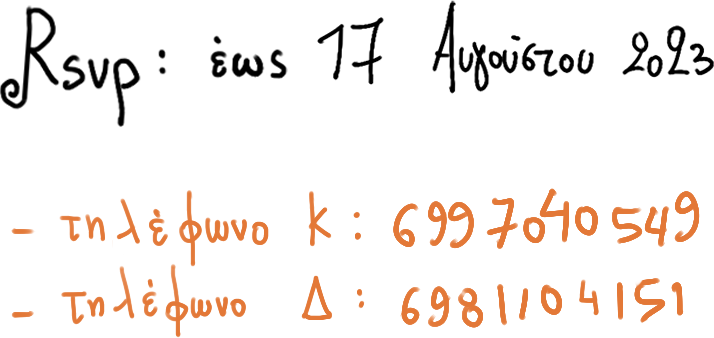 Rsvp: έως 17 Αυγούστου 2023
- τηλέφωνο Κ: 6997040549
- τηλέφωνο Δ: 6981104151